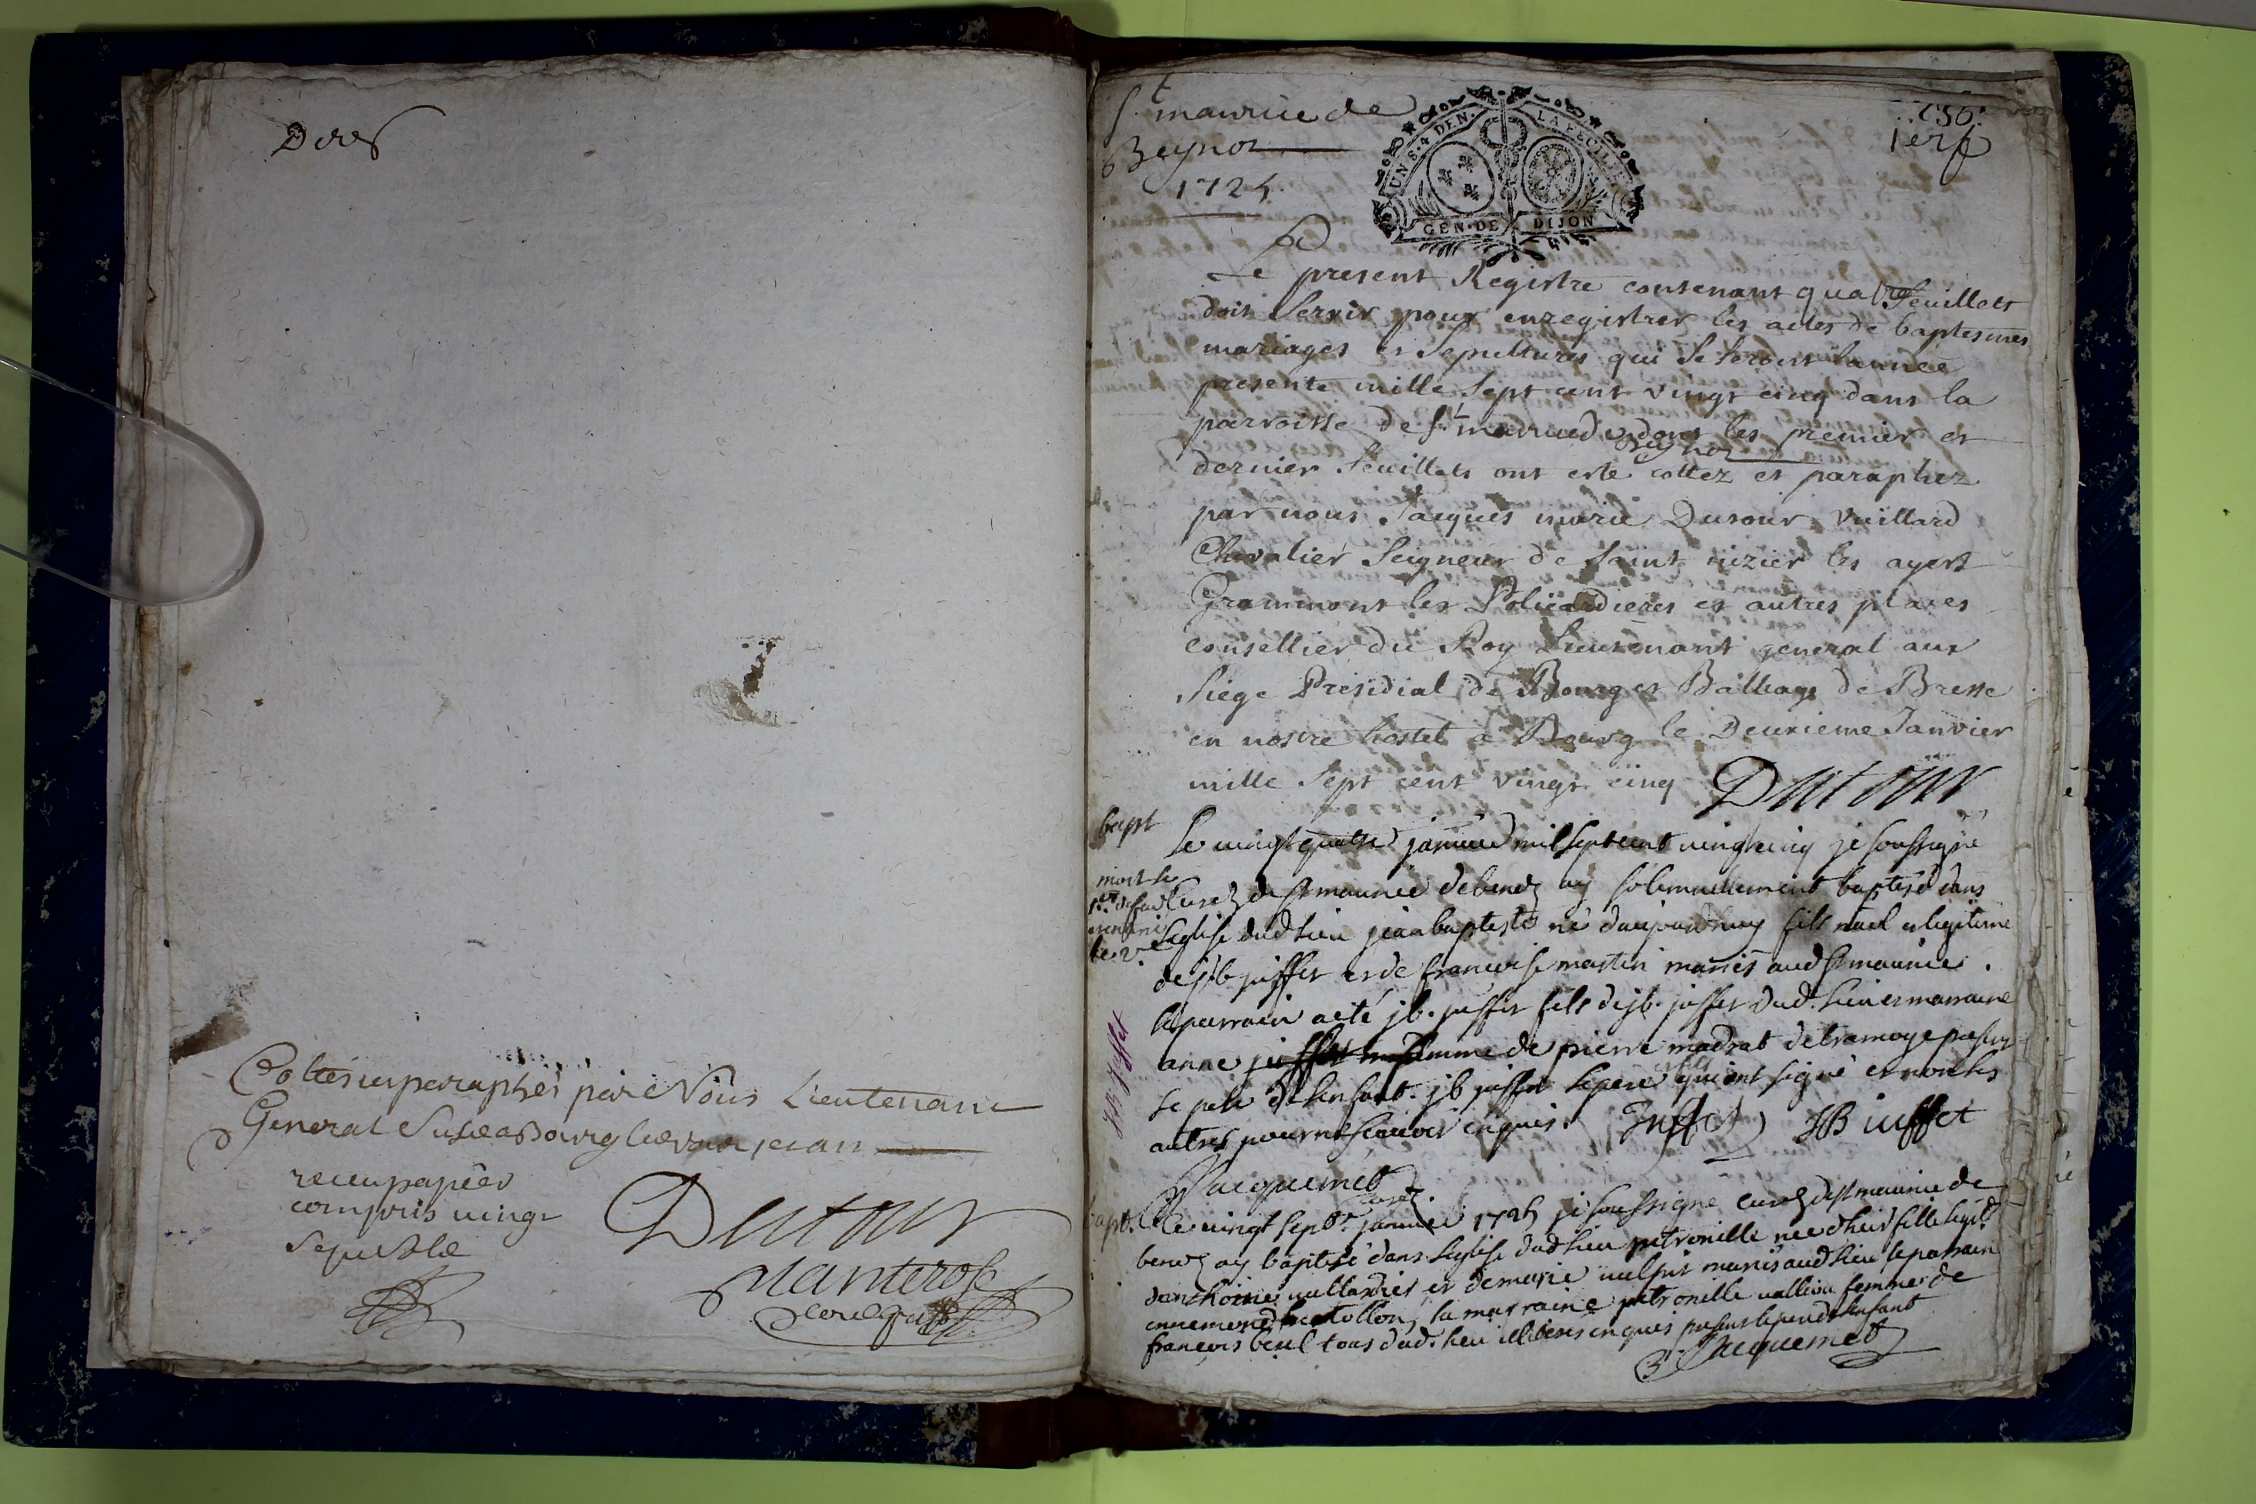 Der
Cottés et paraphés par Nous Lieutenant
General Susd a Bourg
receu papier
compris vingt
sepulture
Dutour
Nanterose
St maurice de
Beynoz
1725
UN S. 4 DEN. LA FEUILLE
GEN. DE DIJON
1er f
Le present Registre contenant quatre feuillets
doit Servir pour enregistrer les actes de baptesmes
mariages et Sepultures qui se feront lannée
presente mille Sept cent vingt cinq dans la
parroisse de St maurice de dont les premier et
Beynoz
dernier feuillets ont esté cottez et paraphez
par nous Jacques marie Dutour Vuillard
Chevalier Seigneur de Saint nizier les
Grammont les Policardieres et autres places
conseillier du Roy Lieutenant general aux
Siege Presidial de Bourg et Balliage de Bresse
en nostre hostel a Bourg le Deuxieme Janvier
mille Sept cent vingt cinq Dutour
bapt
Le vingt quatre janvier mil sept cent vingt cinq je soussigné
mort le
Curé de St maurice debenoz ay solemnellement baptisé dans
leglise dud lieu jean baptiste né daujourdhuy fils natl et legitime
de jb juffet et de francoise martin mariés aud St maurice.
le parrain a eté jb. juffet fils de jb. juffet dud. lieu et marraine
anne juffet femme de pierre madrat de tramoye
le pere de lenfant. jb juffet le pere qui ont signé et non les
autres pour ne scavoir enquis. Juffet JB iuffet
JB Juffet
Jacquemet
curé.
bapt.
Le vingt sept janvier 1725 je soussigné curé de St maurice de
benoz ay baptisé dans leglise dud lieu petronille née dhier fille legit.
danthoine vallardier et de marie mariés aud lieu le parrain
ennemond tollon, la marraine petronille vallein femme de
francois beul tous dud. lieu illiterés enquis present le pere de lenfant
Jacquemet